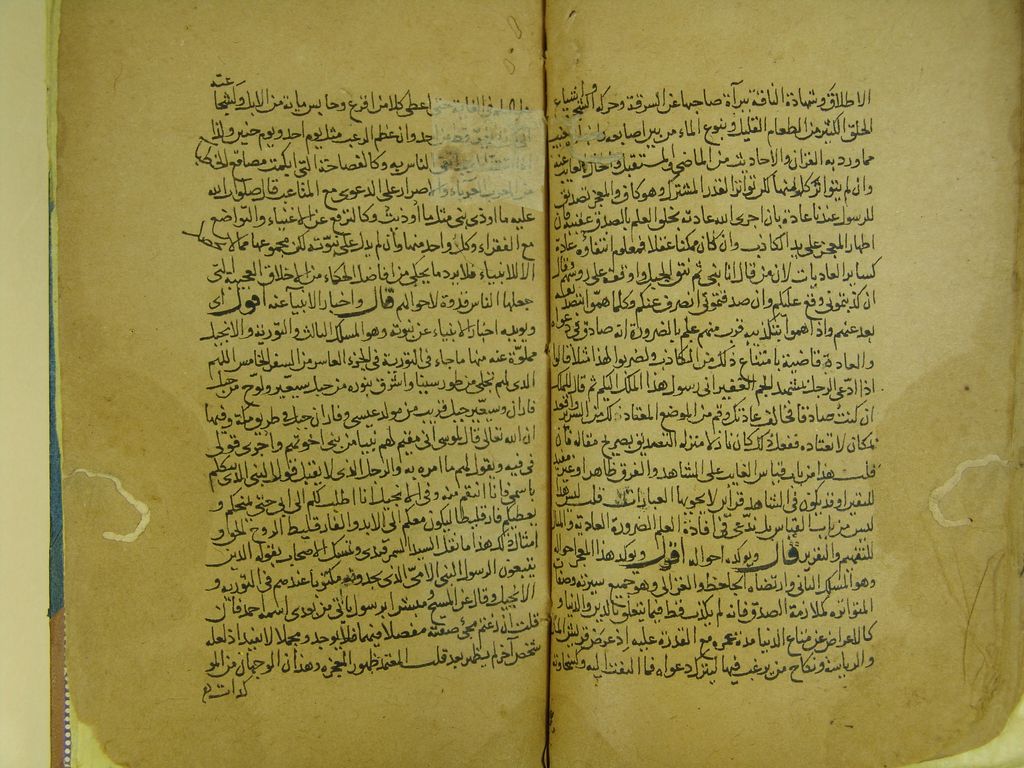 الاطلاق وشهادة الناقة ببرآة صاحبها عن السرقة وحركة
الخلق الكثير من الطعام القليل ونبوع الماء من بين اصابعه
مما ورد به القرآن والاحاديث من الماضي والمستقبل
وان لم يتواتر كل منها لكن تواتر القدر المشترك وهو كاف والمعجز تصديق
للرسول عندنا عادة بان اجرى الله عادته بخلق العلم بالصدق عقيبه فان
اظهار المعجز على يد الكاذب وان كان ممكنا عقلا فمعلوم انتفاؤه عادة
كسائر العاديات لان من قال انا نبي ثم نتق الجبل واوقفه على رؤسهم
ان كذبتموني وقع عليكم وان صدقتموني انصرف عنكم وكلما هموا
بعد عنهم واذا هموا بتكذيبه قرب منهم علم بالضرورة انه صادق في دعواه
والعادة قاضية بامتناع ذلك من الكاذب وضربوا لهذا مثلا قالوا
اذا ادعى الرجل بمشهد الجم الغفير اني رسول هذا الملك اليكم ثم قال للملك
ان كنت صادقا فخالف عادتك وقم من الموضع المعتاد لك من السرير
لمكان لا تعتاده ففعل ذلك كان نازلا منزلة التصديق بصريح مقاله فان
قلت هذا من باب قياس الغائب على الشاهد والفرق ظاهر
قلت
ليس من باب القياس بل ندعي في افادة العلم الضرورة العادية
للتفهيم والتقرير قال ويؤكده احواله اقول ويؤكد هذا المعجز احواله
وهو المسلك الثاني وارتضاه الجاحظ والغزالي وهو جميع سيرته وصفاته
المتواترة كملازمة الصدق فانه لم يكذب قط فيما يتعلق بالدين والدنيا
كالاعراض عن متاع الدنيا مدة عمره مع القدرة عليه اذ عرض قريش
والرياسة ونكاح من يرغب فيها ليترك دعواه فما التفت اليه
اعطى كلا من اقرع وحابس مائة من الابل
احد وان عظم الرعب مثل يوم احد ويوم حنين
وكالفصاحة التي ابكمت مصاقع
اصرار على الدعوى مع المتاعب قال صلوات الله
عليه ما اوذي نبي مثل ما اوذيت وكالترفع عن الاغنياء والتواضع
مع الفقراء وكل واحد منها وان لم يدل على نبوته لكن مجموعها مما لا
الا للانبياء فلا يرد ما يحكى من افاضل الحكماء من الاخلاق العجيبة التي
جعلها الناس قدوة لاحوالهم قال واخبار الانبيآء عنه اقول اي
ويؤيده اخبار الانبياء عن نبوته وهو المسلك الثالث والتورية والانجيل
مملوة عنه منها ما جاء في التورية في الجزء العاشر من السفر الخامس
الذي لهم تجلى من طور سيناء واشرق بنوره من جبل سيعير ولوح من جبل
فاران وسيعير جبل قريب من مولد عيسى وفاران جبل في طريق مكة وفيها
ان الله تعالى قال يا موسى اني مقيم لهم نبيا من بني اخوتهم واجرى قولي
في فيه ويقول لهم ما امره به والرجل الذي لا يقبل قول النبي الذي يتكلم
باسمي فانا انتقم منه وفي الانجيل انا اطلب لكم الى ابي حتى يمنحكم و
يعطيكم فارقليطا ليكون معكم الى الابد والفارقليط الروح الحق و
امثال ذلك هذا ما نقل السيد السمرقندي وتمسك الاصحاب بقوله الذين
يتبعون الرسول النبي الامي الذي يجدونه مكتوبا عندهم في التورية و
الانجيل وقال عن المسيح ومبشرا برسول يأتي من بعدي اسمه احمد فان
قلت ان زعتم مجئ صفته مفصلا فيهما فلا يوجد ومجملا لا يفيد اذ لعله
شخص آخر لم يظهر بعد قلت المعتمد ظهور المعجزة وهذان الوجهان من